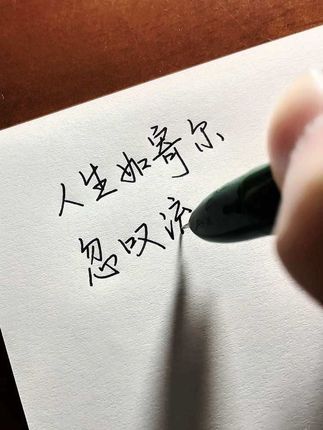 人生如寄尔
忽叹流